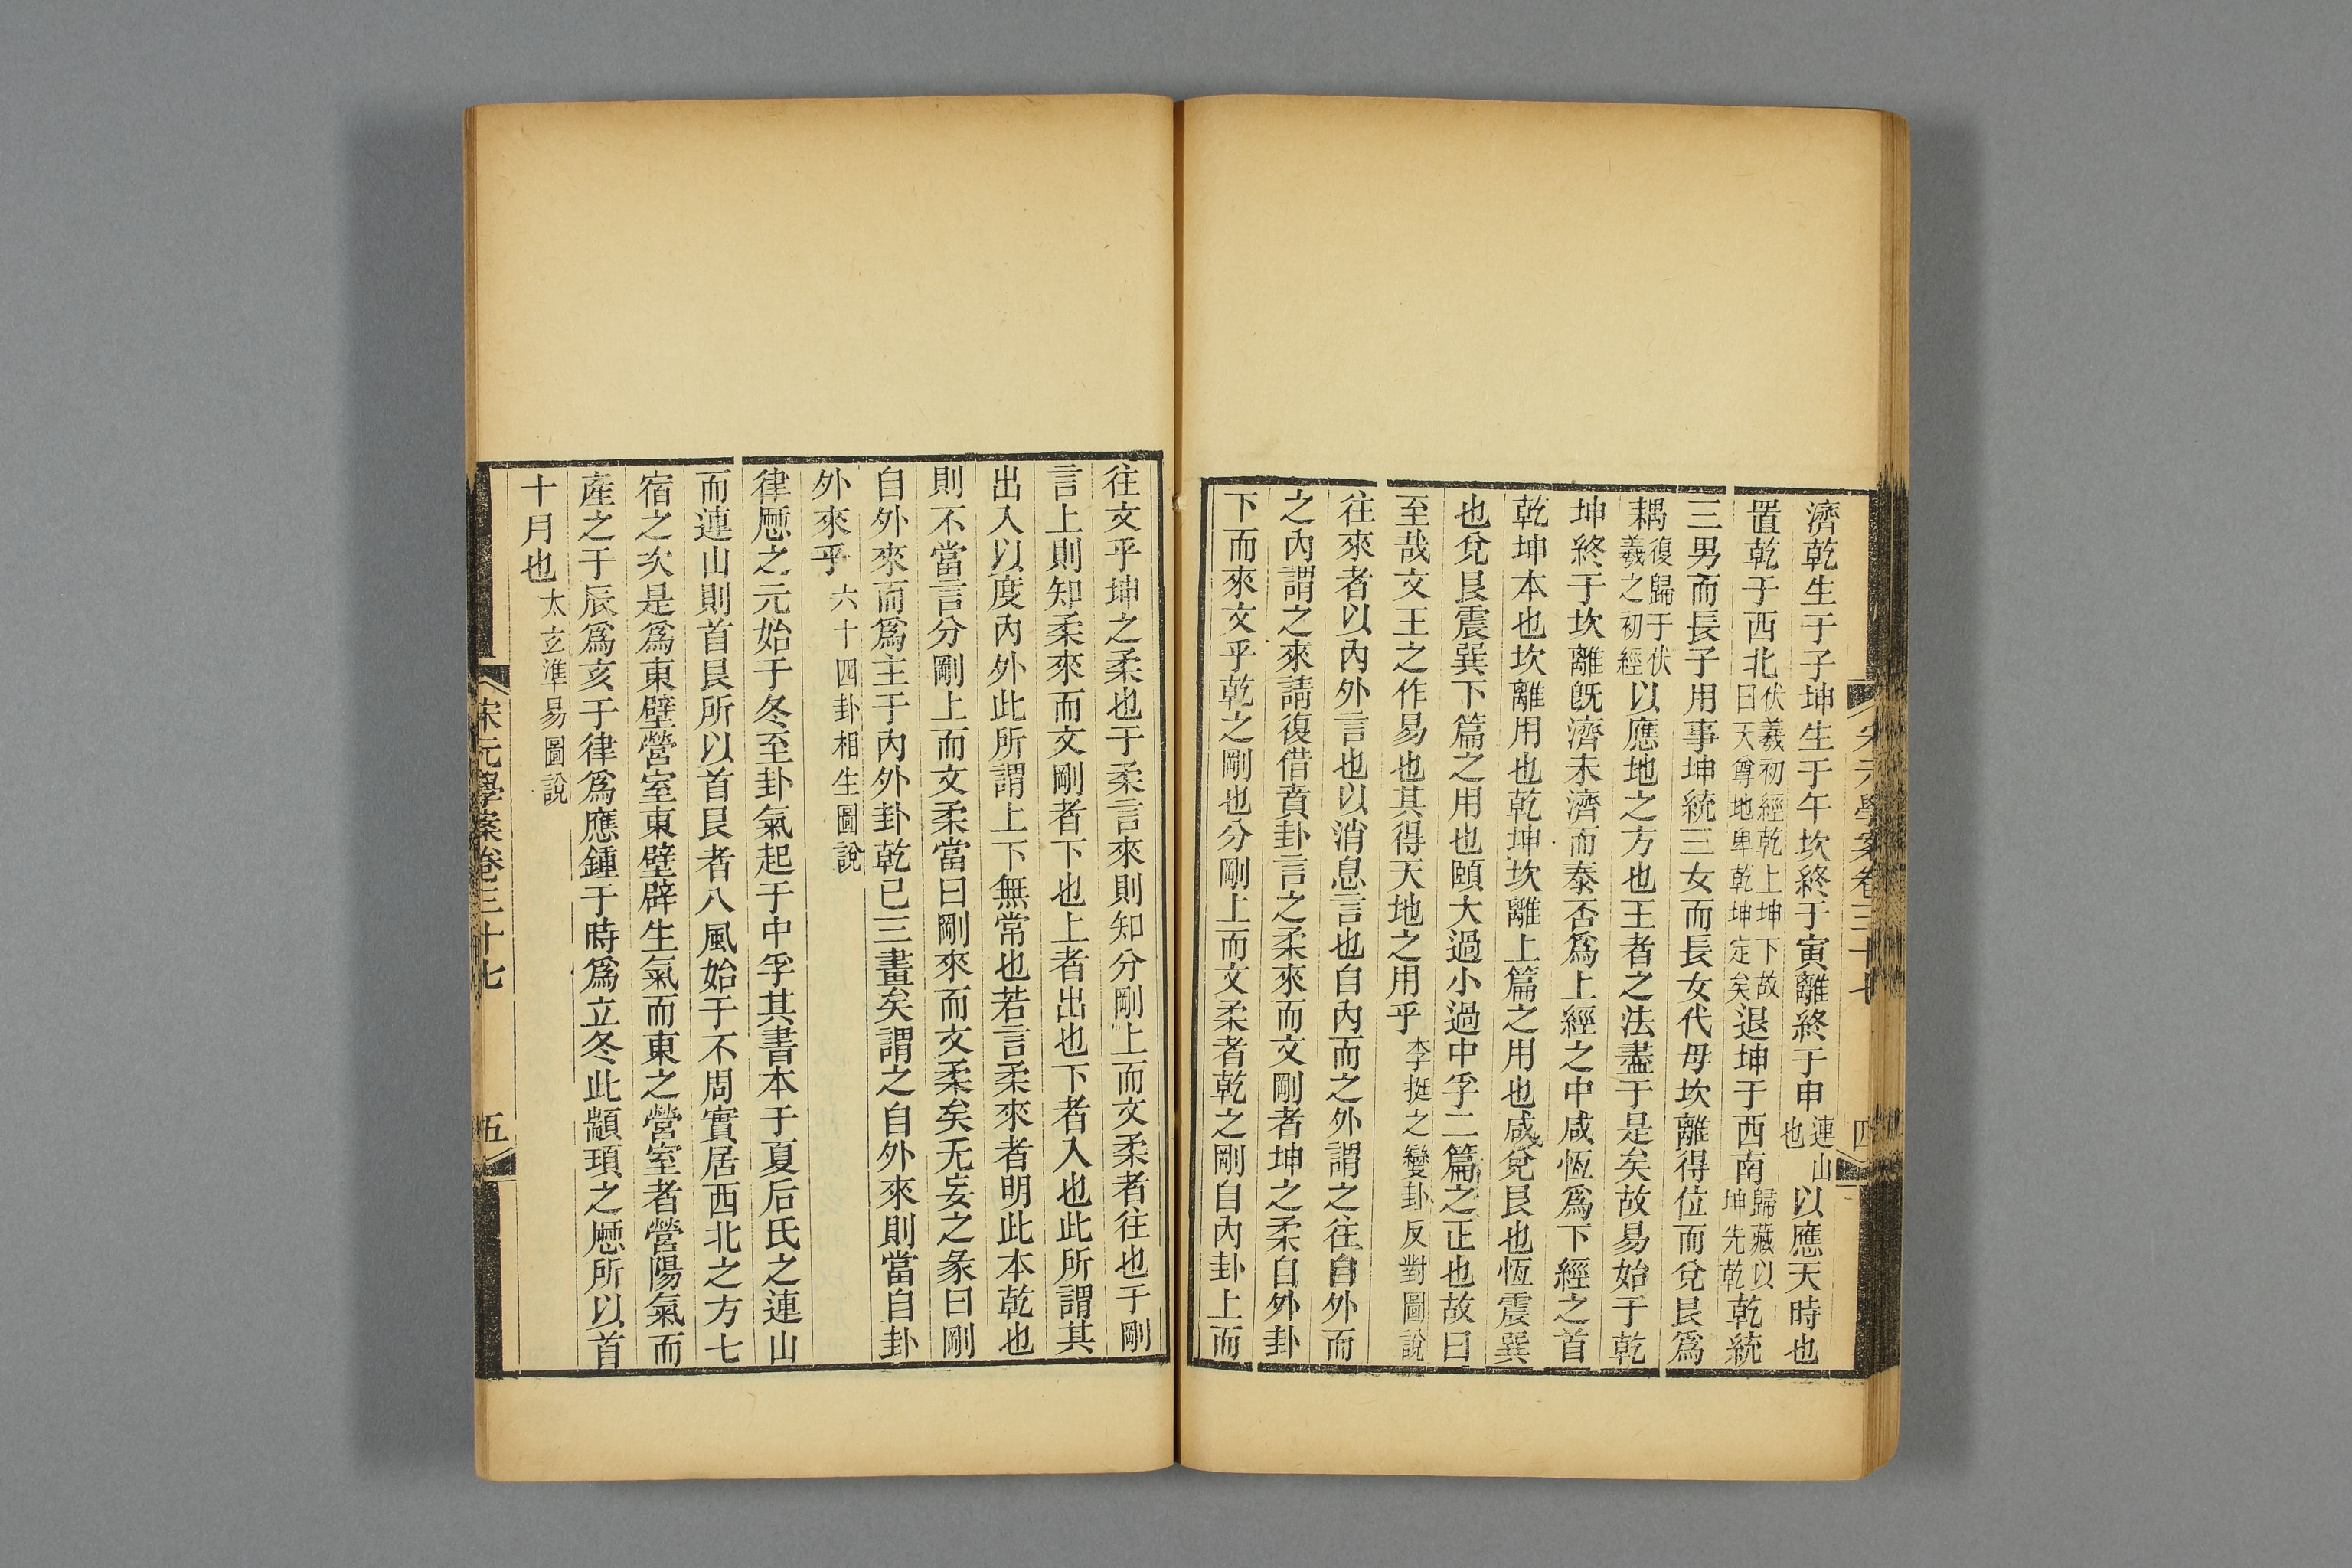 宋元學案卷三十七 四
濟乾生于子坤生于午坎終于寅離終于申連山也以應天時也
置乾于西北伏羲初經乾上坤下故曰天尊地卑乾坤定矣退坤于西南歸藏以坤先乾乾統
三男而長子用事坤統三女而長女代母坎離得位而兌艮爲
耦復歸于伏羲之初經以應地之方也王者之法盡于是矣故易始于乾
坤終于坎離旣濟未濟而泰否爲上經之中咸恆爲下經之首
乾坤本也坎離用也乾坤坎離上篇之用也咸兌艮也恆震巽
也兌艮震巽下篇之用也頤大過小過中孚二篇之正也故曰
至哉文王之作易也其得天地之用乎李挺之變卦反對圖說
往來者以內外言也以消息言也自內而之外謂之往自外而
之內謂之來請復借賁卦言之柔來而文剛者坤之柔自外卦
下而來文乎乾之剛也分剛上而文柔者乾之剛自內卦上而
往文乎坤之柔也于柔言來則知分剛上而文柔者往也于剛
言上則知柔來而文剛者下也上者出也下者入也此所謂其
出入以度內外此所謂上下無常也若言柔來者明此本乾也
則不當言分剛上而文柔當曰剛來而文柔矣无妄之彖曰剛
自外來而爲主于內外卦乾已三畫矣謂之自外來則當自卦
外來乎六十四卦相生圖說
律厯之元始于冬至卦氣起于中孚其書本于夏后氏之連山
而連山則首艮所以首艮者八風始于不周實居西北之方七
宿之次是爲東壁營室東壁辟生氣而東之營室者營陽氣而
產之于辰爲亥于律爲應鍾于時爲立冬此顓頊之厯所以首
十月也太玄準易圖說
宋元學案卷三十七 五